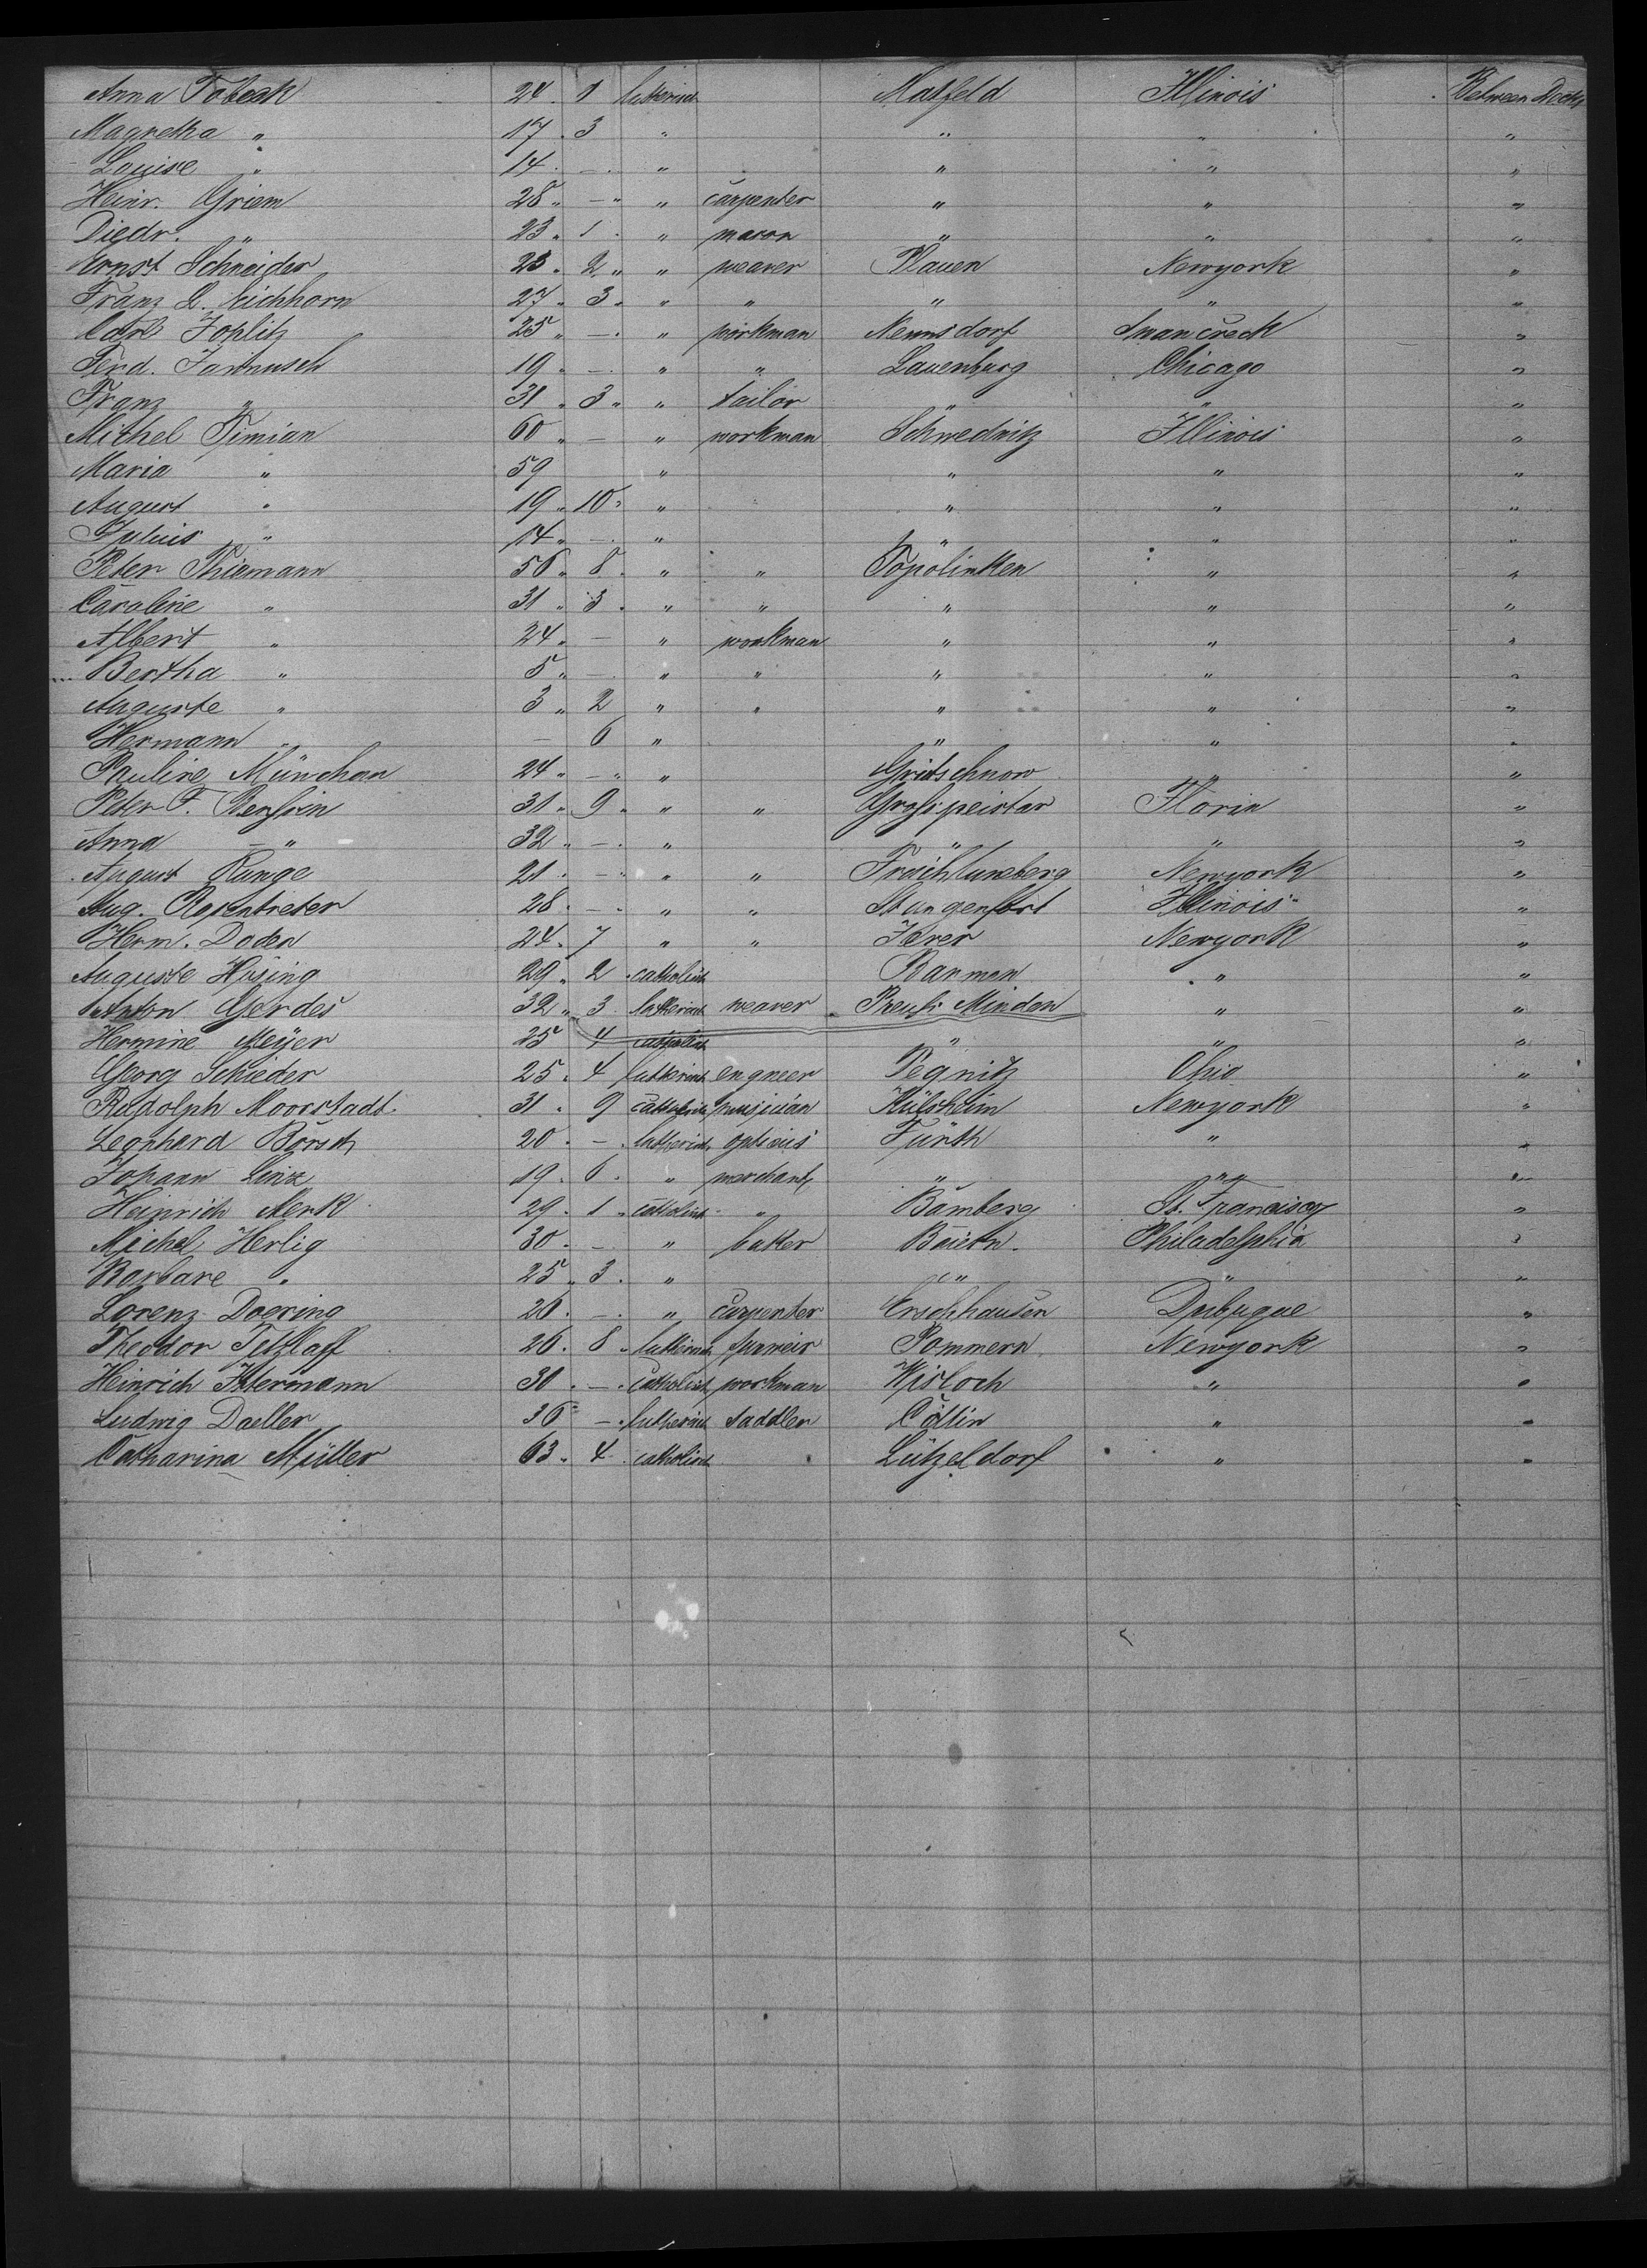 Anna Tobeck 24. 1 lutherisch Hatfeld Illinois Between Decks
Magretha " 17. 3 " " " "
Louise " 14. — " " " "
Heinr. Griem 28 " — " " carpenter " " "
Diedr. " 23 " 1. " mason " " "
Ernst Schneider 25. 2 " " weaver Plauen Newyork "
Franz L. Eichhorn 27 " 3 " " " " " "
Carl Joplitz 25 " — " workman Nennsdorf "
Ferd. 19 " — " " Lauenburg Chicago "
Franz " 31 " 3 " " tailor " " "
Michel Timian 60 " — " workman Schwednitz Illinois "
Maria " 59 " " " "
August " 19 " 10 " " " " "
Julius " 14 " — " " " "
Peter Thiemann 56 " 8. " " Topolinken " "
Caroline " 31 " 3. " " " " "
Albert " 24 " — " workman " " "
Bertha " 5 " — " " " " "
Auguste " 3 " 2 " " " " "
Hermann " — 6 " " " "
Pauline Münchau 24 " — " " Gritschnow " "
Peter F. 31 " 9 " " " Florin "
Anna — " 32 " — " " " "
August Runge 21. — " " " Newyork "
Aug. Rosentreter 28. — " " Illinois "
Herm. Doden 24. 7 " " Jever Newyork "
Auguste Hüsing 29 " 2 catholisch Barmen " "
Anton Gerdes 32 " 3 lutherisch weaver Preuß. Minden " "
Hermine Meÿer 25 4 catholisch " " "
Georg Schieder 25. 4 lutherisch engneer Pegnitz Ohio "
Rudolph Moorstadt 31. 9 catholisch musician Külsheim Newyork "
Leonhard Börsch 20. — lutherisch opticus Fürth " "
Johann Link 19. 6. " merchant " " "
Heinrich Merk 29. 1 " catholisch " Bamberg St. Francisco "
Michel Herlig 30. — " baker Baiern. Philadelphia "
Barbare " 25 " 3. " " " "
Lorenz Doering 26. — " carpenter Erschhausen Dubuque "
Theodor Tetzlaff 26. 8 " lutherisch Pommern Newyork "
Heinrich Ittermann 30. — catholisch workman Wisloch " "
Ludwig Daeller 36 — lutherisch saddler Cöllin " "
Catharina Müller 63. 4. catholisch Lützeldorf " "